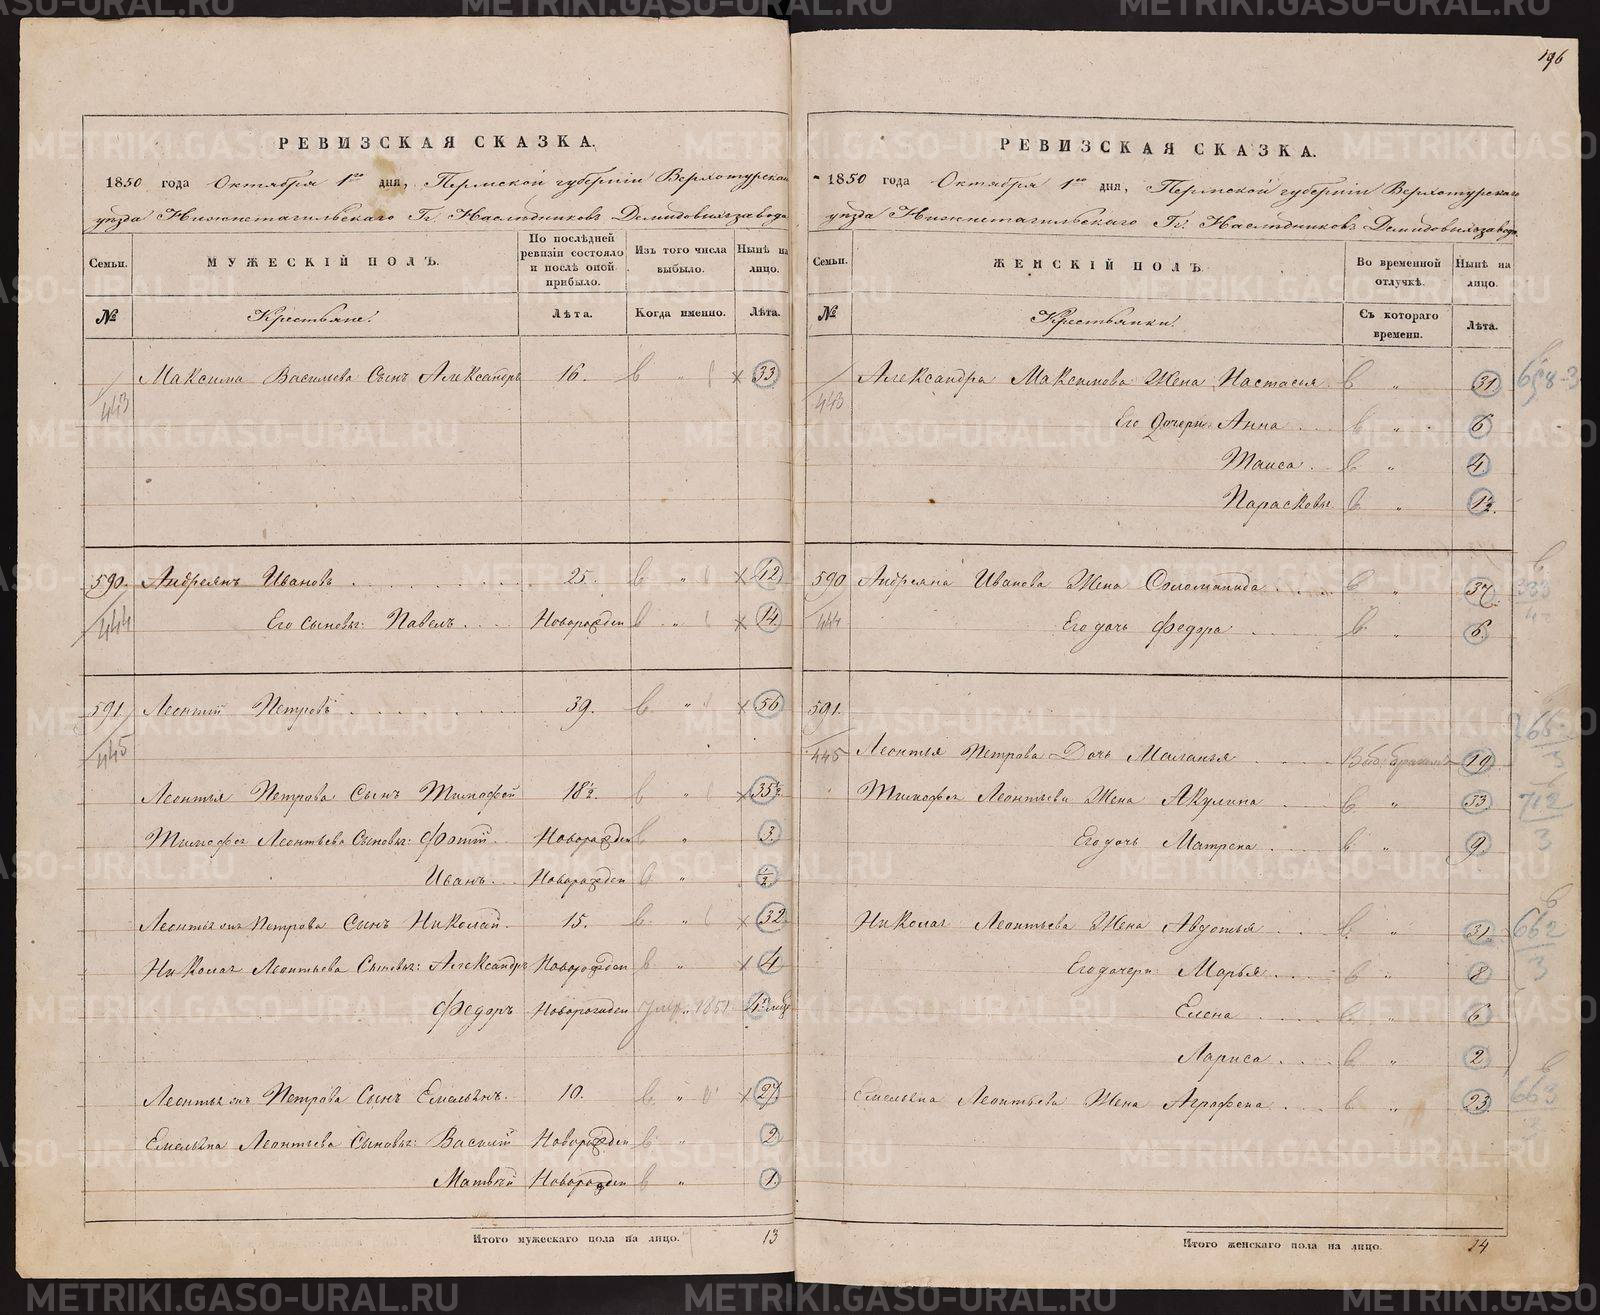 196
РЕВИЗСКАЯ СКАЗКА.
1850 года Октября 1го дня, Пермской губерніи Верхотурскаго
уѣзда Нижнетагильскаго Гг. Наслѣдниковъ Демидовыхъ завода
Семьи. МУЖЕСКІЙ ПОЛЪ. По послѣдней ревизіи состояло и послѣ оной прибыло. Изъ того числа выбыло. Нынѣ на лицо.
№ Крестьяне. Лѣта. Когда именно. Лѣта.
Максима Васильева Сынъ Александръ 16. 33
443
590. Андреянъ Ивановъ 25. 42
444 Его сыновья: Павелъ Новорожден 14
591. Леонтій Петровъ 39. 56
445
Леонтья Петрова Сынъ Тимофей 18½. 35½
Тимофея Леонтьева Сыновья: Фотій Новорожден 3.
Иванъ Новорожден ½
Леонтья Петрова Сынъ Николай 15. 32
Николая Леонтьева Сыновья: Александръ Новорожден 4
Федоръ Новорожден 1851
Леонтья Петрова Сынъ Емельянъ. 10. 27.
Емельяна Леонтьева Сыновья: Василій Новорожден 2
Матвѣй Новорожден 1.
Итого мужескаго пола на лицо. 13
РЕВИЗСКАЯ СКАЗКА.
1850 года Октября 1го дня, Пермской губерніи Верхотурскаго
уѣзда Нижнетагильскаго Гг. Наслѣдниковъ Демидовыхъ завода
Семьи. ЖЕНСКІЙ ПОЛЪ. Во временной отлучкѣ. Нынѣ на лицо.
№ Крестьянки. Съ котораго времени. Лѣта.
Александра Максимова Жена Настасья 31.
443 Его Дочери Анна 6
Таиса 4.
Парасковья 1½.
590 Андреяна Иванова Жена Соломанида 37.
444 Его дочь Федора 6.
591.
445 Леонтья Петрова Дочь Маланья 19
Тимофея Леонтьева Жена Акулина 33 712
Его дочь Матрена 9
Николая Леонтьева Жена Авдотья 31 662
Его дочери Марья 8
Елена 6
Лариса 2
Емельяна Леонтьева Жена Аграфена 23 663
Итого женскаго пола на лицо. 14
METRIKI.GASO-URAL.RU